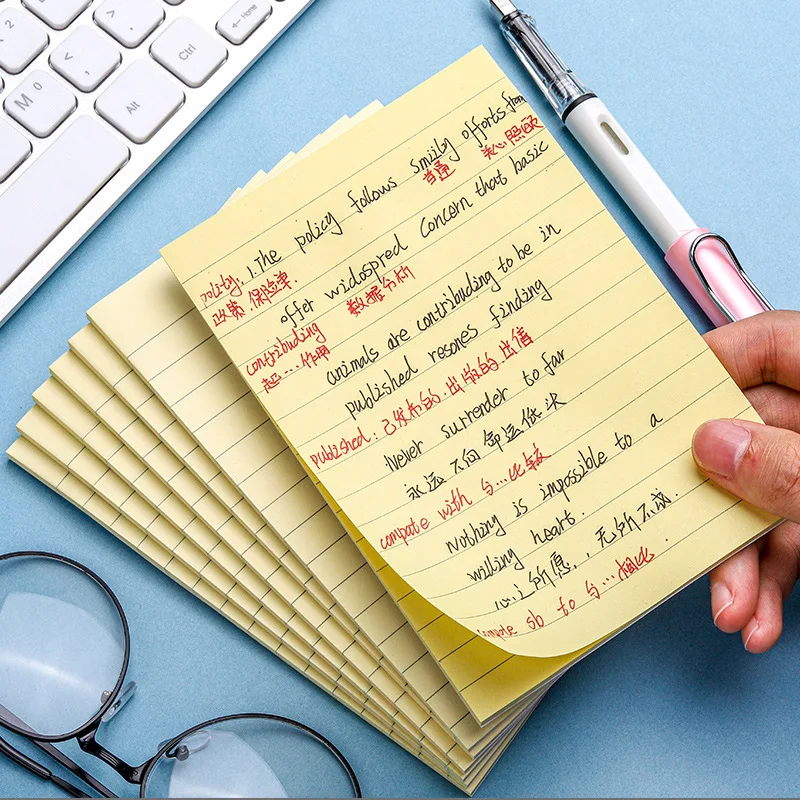 Home
Ctrl
Alt
M 0
< ,
1.The policy follows smiity efforts from
普通 关心照顾
polity.
政策.保险单.
offer widospred Concern that basic
数据分析
contribuding
起...作用
animals are contribuding to be in
published resones finding
published:已发布的.出版的.出信
Never surrender to far
永远不向命运低决
compate with 与...比较
Nothing is impossible to a
willing heart.
心之所愿,,无所不成.
sb to 与...相比.